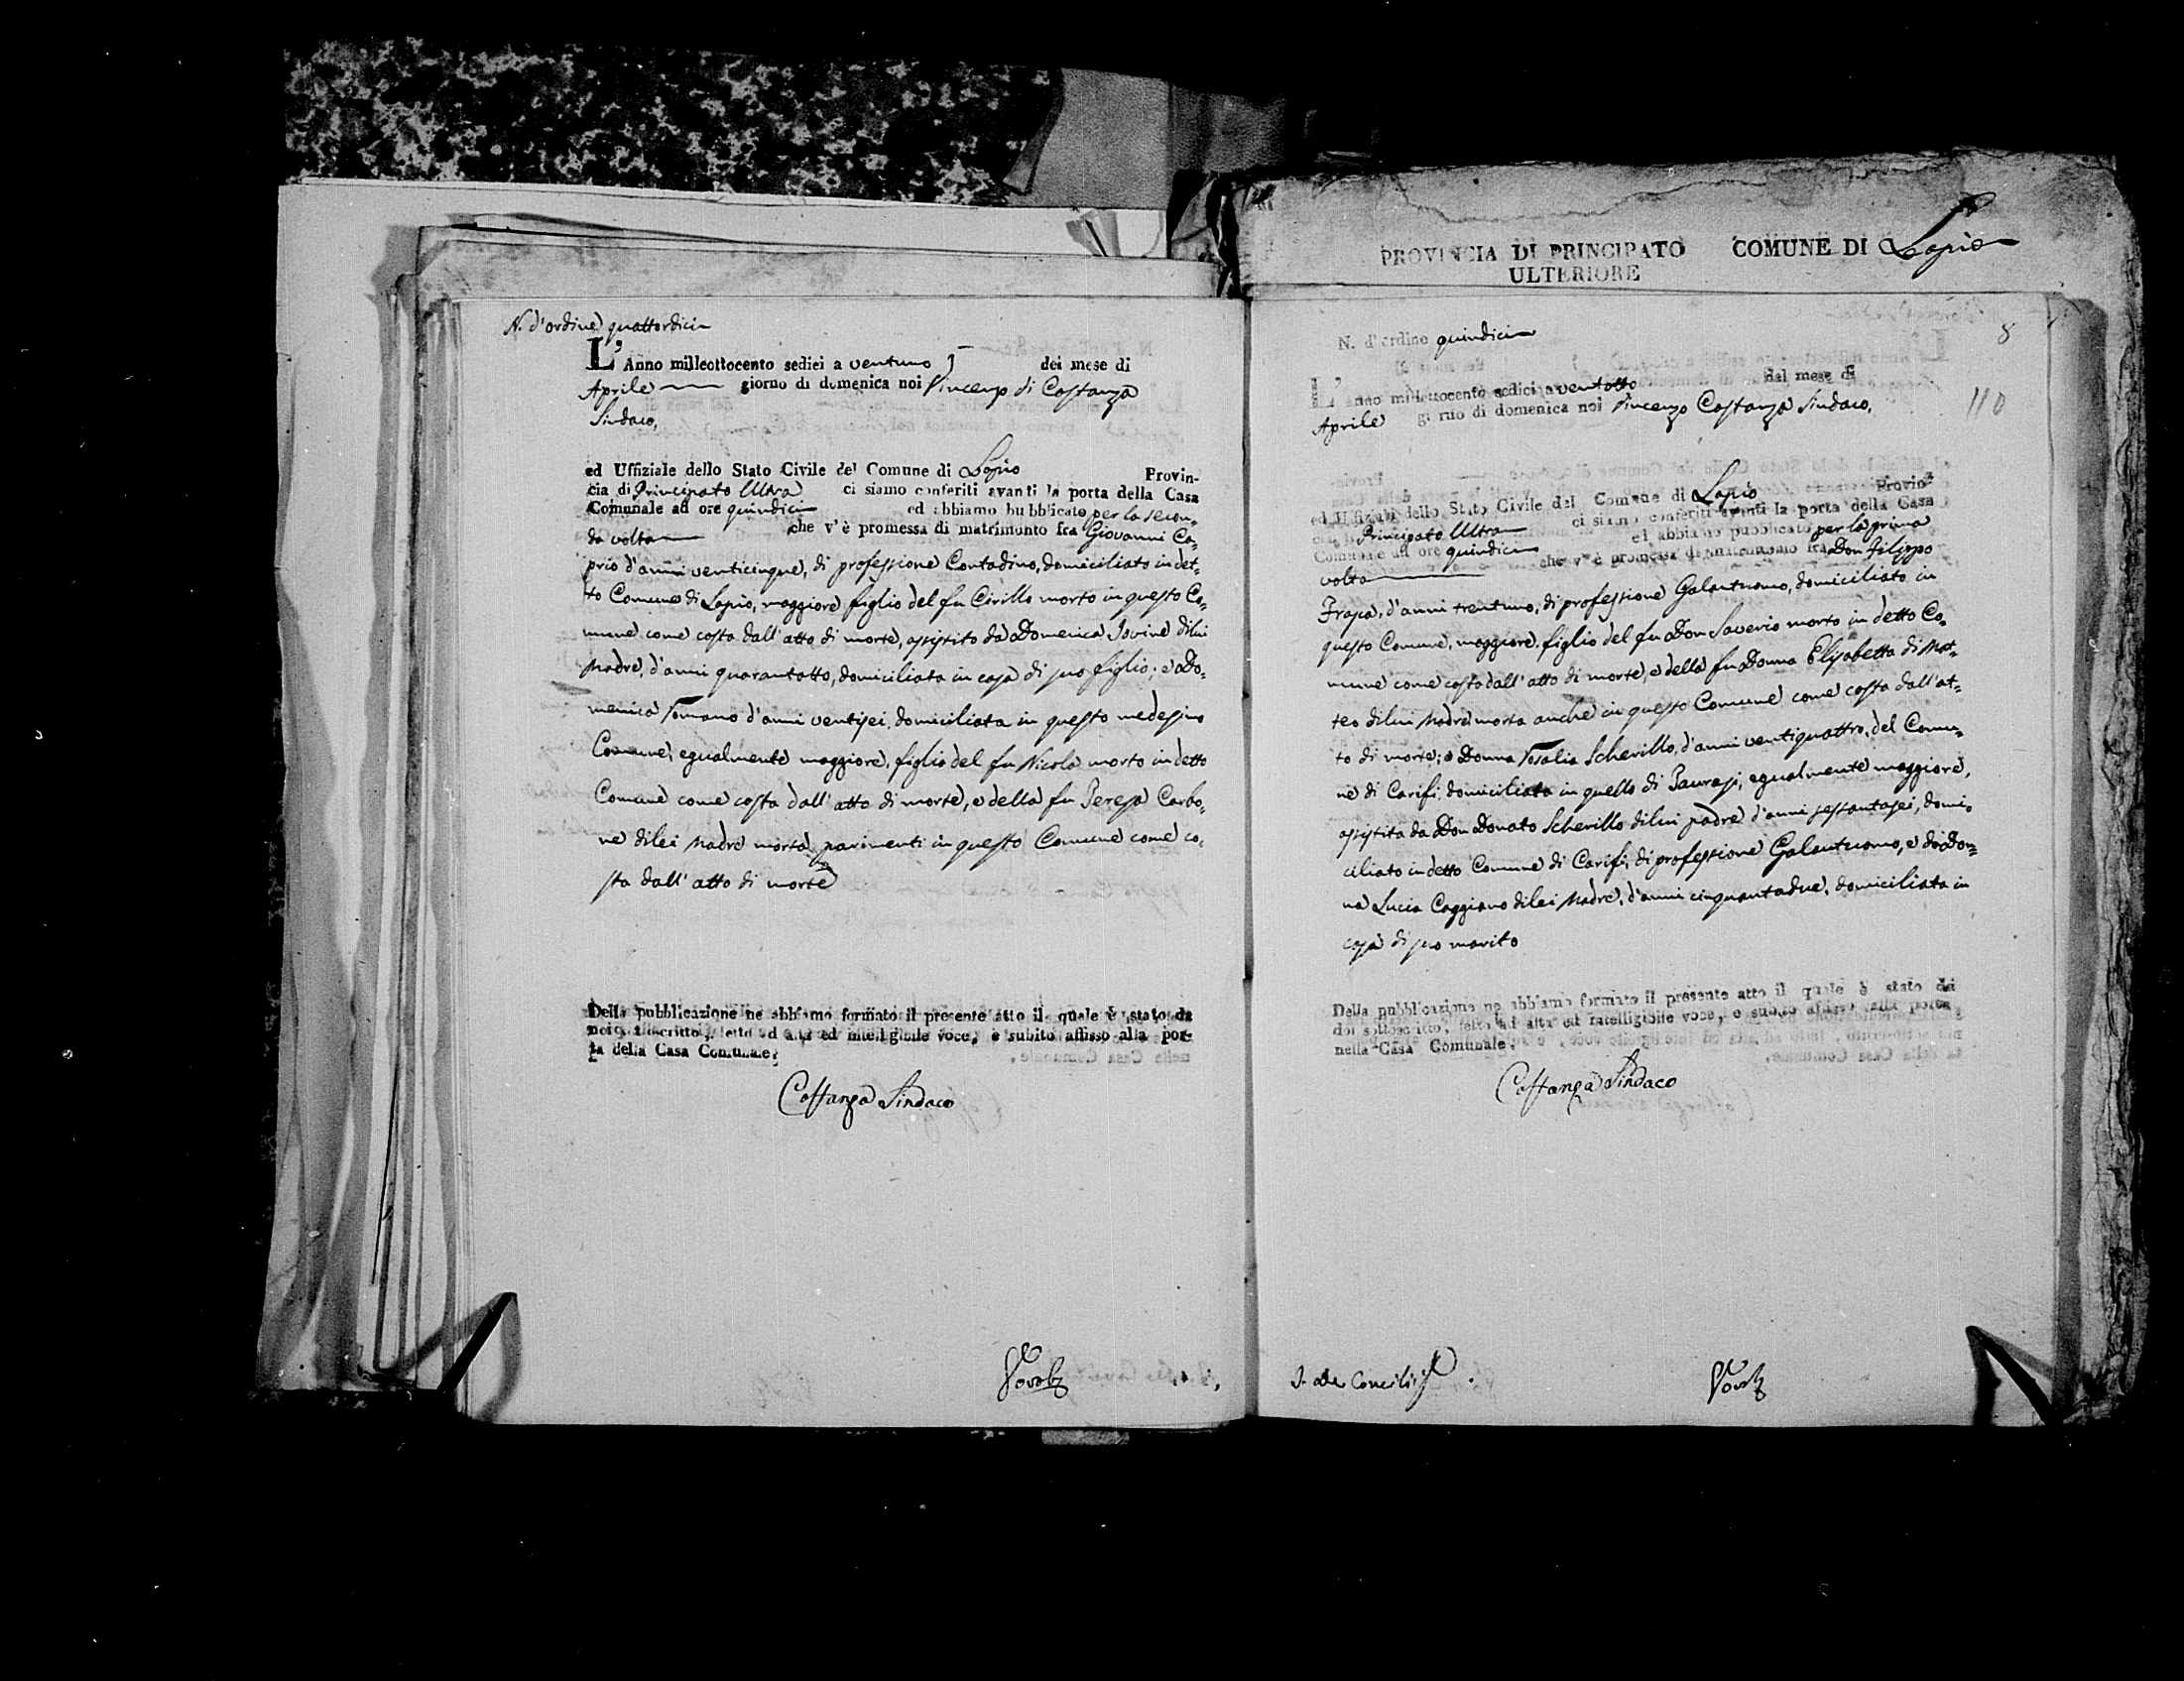 N. d'ordine quattordici
L'Anno milleottocento sedici a ventuno dei mese di
Aprile giorno di domenica noi Vincenzo di Costanza
Sindaco,
ed Uffiziale dello Stato Civile del Comune di Lapio Provin-
cia di Principato Ultra ci siamo conferiti avanti la porta della Casa
Comunale ad ore quindici ed abbiamo bubblicato per la secon-
da volta che v'è promessa di matrimonto fra Giovanni Ca-
prio d'anni venticinque, di professione Contadino, domiciliato in det-
to Comune di Lapio, maggiore figlio del fu Cirillo morto in questo Co-
mune come costa dall'atto di morte, assistito da Domenica Iovine di lui
Madre, d'anni quarantotto, domiciliata in casa di suo figlio; e Do-
menica Romano d'anni ventisei, domiciliata in questo medesimo
Comune, egualmente maggiore, figlia del fu Nicola morto in detto
Comune come costa dall'atto di morte, e della fu Teresa Carbo-
ne di lei Madre morta parimenti in questo Comune come co-
sta dall'atto di morte
Della pubblicazione ne abbiamo formato il presente atto il quale è stato da
noi sottoscritto, letto ad alta ed intelligibile voce, e subito affisso alla por-
ta della Casa Comunale.
Costanza Sindaco
PROVINCIA DI PRINCIPATO COMUNE DI Lapio
ULTERIORE
8
110
N. d'ordino quindici
L'anno milleottocento sedici a ventotto del mese di
Aprile giorno di domenica noi Vincenzo Costanza Sindaco,
ed Uffiziale dello Stato Civile del Comune di Lapio Provin-
cia di Principato Ultra ci siamo conferiti avanti la porta della Casa
Comunale ad ore quindici ed abbiamo pubblicato per la prima
volta che v'è promessa di matrimonio fra Don Filippo
Frasca, d'anni trentuno, di professione Galantuomo, domiciliato in
questo Comune, maggiore, figlio del fu Don Saverio morto in detto Co-
mune come costa dall'atto di morte, e della fu Donna Elisabetta di Mat-
teo di lui Madre morta anche in questo Comune come costa dall'at-
to di morte; e Donna Rosalia Scherillo, d'anni ventiquattro, del Comu-
ne di Carifi, domiciliata in quello di Taurasi, egualmente maggiore,
assistita da Don Donato Scherillo di lui padre d'anni sessantasei, domi-
ciliato in detto Comune di Carifi, di professione Galantuomo, e da Don-
na Lucia Caggiano di lei Madre, d'anni cinquantadue, domiciliata in
casa di suo marito
Della pubblicazione ne abbiamo formato il presente atto il quale è stato da
doi sottoscritto, letto ad alta ed intelligibile voce, e subito affisso alla porta
nella Casa Comunale.
Costanza Sindaco